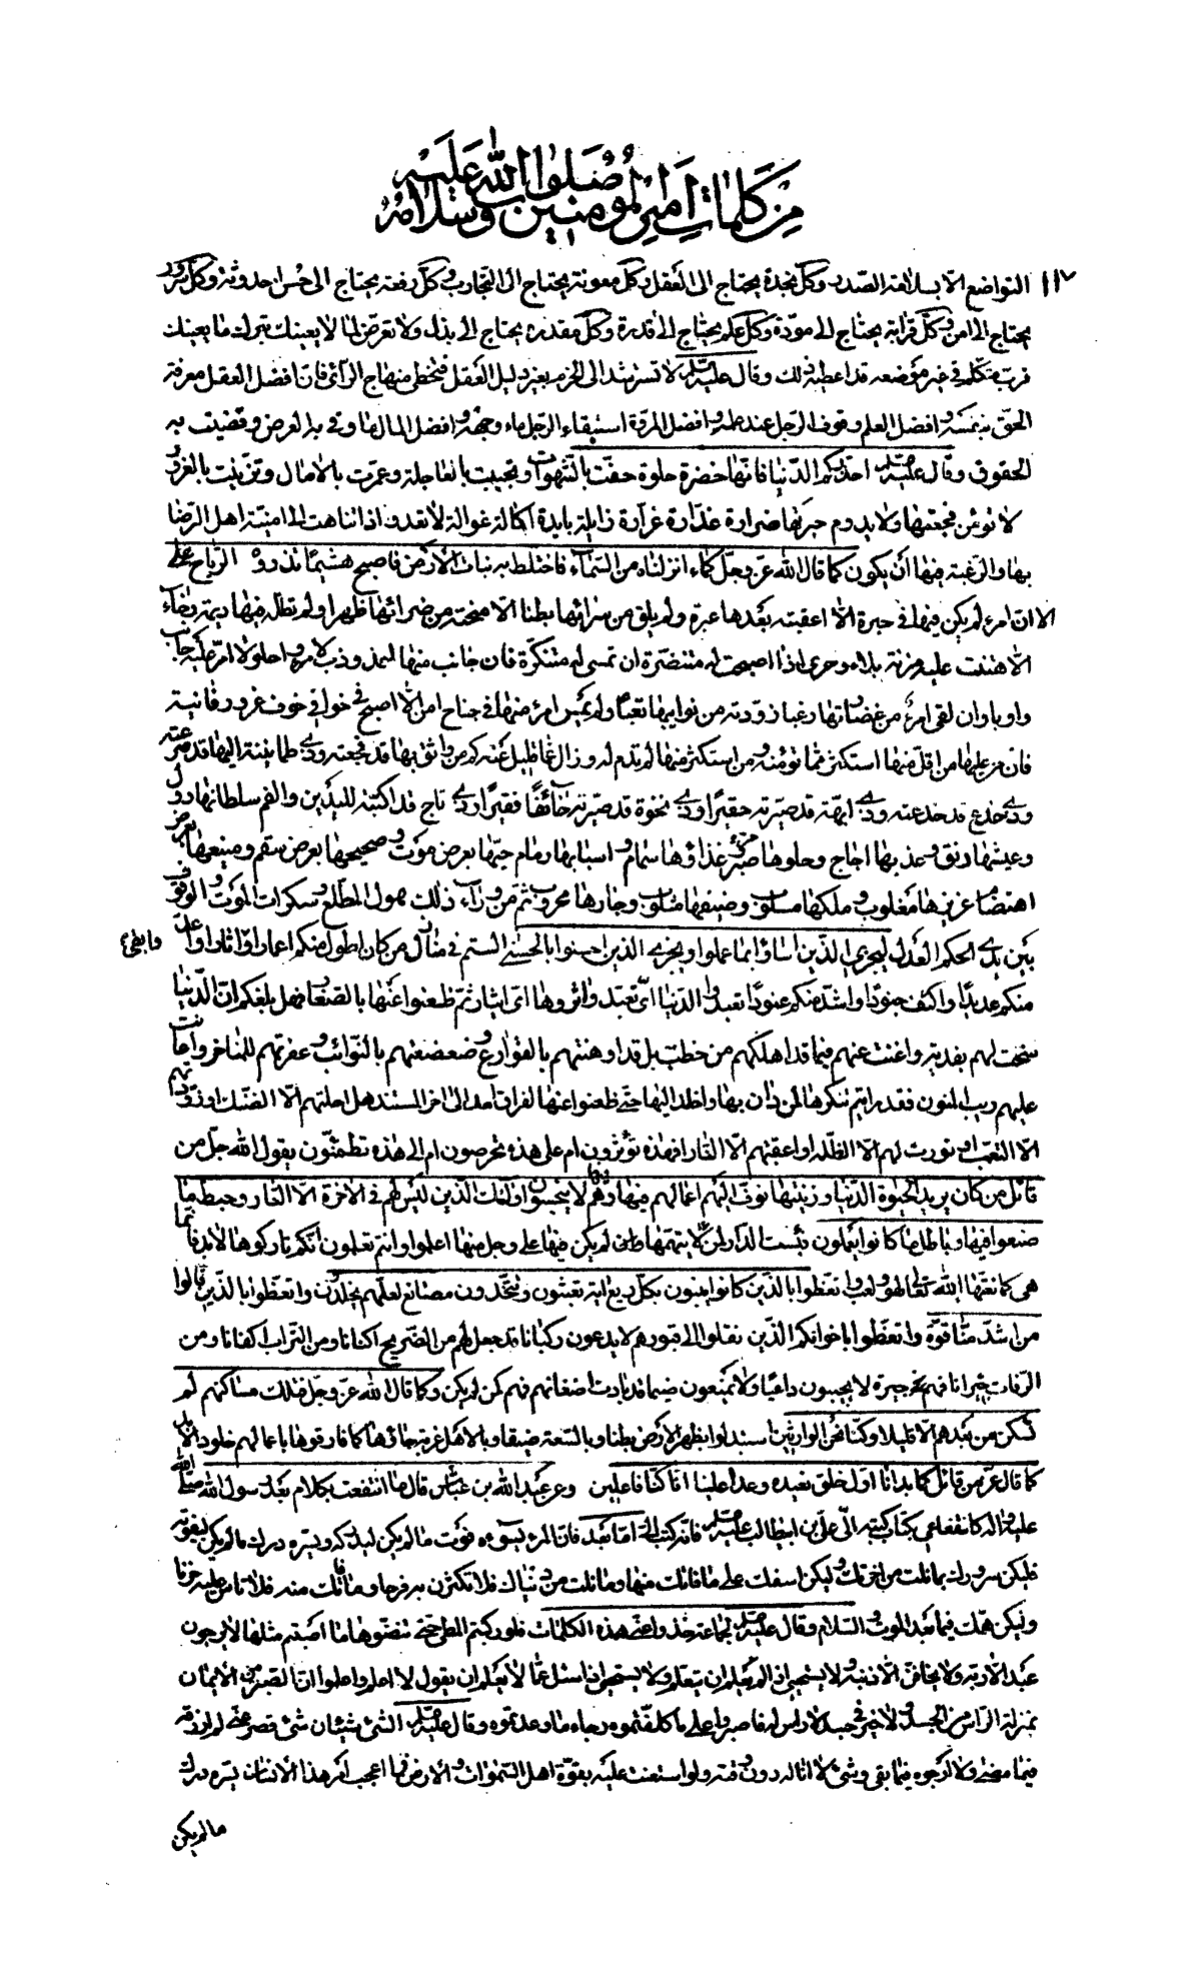 من كلمات امير المؤمنين صلوات الله عليه وسلامه
١١٧
التواضع الا بسلامة الصدر وكل نجدة يحتاج الى العقل وكل معونة يحتاج الى التجارب وكل رفعة يحتاج الى حسن احدوثة وكل سرور
يحتاج الى امن وكل قرابة يحتاج الى مودة وكل علم يحتاج الى قدرة وكل مقدرة يحتاج الى بذل ولا تعرض لما لا يعنيك بترك ما يعنيك
فرب متكلم في غير موضعه قد اعطبه ذلك وقال عليه السلام لا تسترشد الى الحزم بغير دليل العقل فتخطى منهاج الرأى فان افضل العقل معرفة
الحق بنفسه وافضل العلم وقوف الرجل عند علمه وافضل المروة استبقاء الرجل ماء وجهه وافضل المال ما وقى به العرض وقضيت به
الحقوق وقال عليه السلام احذركم الدنيا فانها خضرة حلوة حفت بالشهوات وتحببت بالعاجلة وعمرت بالامال وتزينت بالغرور
لا تؤمن فجعتها ولا يدوم حبرتها ضرارة غدارة غرارة زايلة بايدة اكالة غوالة لا تعدو اذا تناهت الى امنية اهل الرضا
بها والرغبة فيها أن يكون كما قال الله عز وجل كماء انزلناه من السماء فاختلط به نبات الارض فاصبح هشيما تذروه الرياح على
الا ان امرء لم يكن فيها في حبرة الا اعقبته بعدها عبرة ولم يلق من سرائها بطنا الا منحته من ضرائها ظهرا ولم تطله فيها ديمة رخاء
الا هتنت عليه مزنة بلاء وحرى اذا اصبحت له متنضرة ان تمسى له متنكرة فان جانب منها اعذوذب لامرء واحلولا امر عليه جانب
واوبا وان لقى امرء من غضارتها رغبا زودته من نوايبها تعبا ولم يمس امرء منها في جناح امن الا اصبح في خوافى خوف غرور فانية
فان من عليها من اقل منها استكثر مما تؤمنه ومن استكثر منها لم تدم له وزال عما قليل عنه كم من واثق بها قد فجعته وذى طمانينة اليها قد صرعته
وذى خدع قد خدعته وذى ابهة قد صيرته حقيرا وذى نخوة قد صيرته خائفا فقيرا وذى تاج قد اكبته لليدين والفم سلطانها دول
وعيشها رنق وعذبها اجاج وحلوها صبر غذاؤها سمام واسبابها رمام حيها بعرض موت وصحيحها بعرض سقم ومنيعها بعرض
اهتضام عزيزها مغلوب وملكها مسلوب وضيفها مثلوب وجارها محروب ثم من وراء ذلك هول المطلع وسكرات الموت والوقوف
بين يدى الحكم العدل ليجزى الذين اساؤا بما عملوا ويجزى الذين احسنوا بالحسنى الستم في منازل من كان اطول منكم اعمارا واثارا واعد
وابقى
منكم عديدا واكثف جنودا واشد منكم عنودا تعبدوا الدنيا اى تعبد واثروها اى ايثار ثم ظعنوا عنها بالصغار فهل بلغكم ان الدنيا
سخت لهم بفدية واغنت عنهم فيما قد اهلكهم من خطب بل قد اوهنتهم بالقوارع وضعضعتهم بالنوائب وعفرتهم للمناخر واعانت
عليهم ريب المنون فقد رايتم تنكرها لمن دان بها واخلد اليها حتى ظعنوا عنها لفراق امد الى اخر المستند هل احلتهم الا الضنك او زودتهم
الا التعب او نورت لهم الا الظلمة او اعقبتهم الا النار افهذه تؤثرون ام على هذه تحرصون ام الى هذه تطمئنون يقول الله جل من
قائل من كان يريد الحيوة الدنيا وزينتها نوف اليهم اعمالهم فيها وهم فيها لا يبخسون اولئك الذين ليس لهم في الاخرة الا النار وحبط ما
صنعوا فيها وباطل ما كانوا يعملون فبئست الدار لمن لا يتهمها ولمن لم يكن فيها على وجل منها اعلموا وانتم تعلمون انكم تاركوها لابد فانما
هى كما نعتها الله تعالى لهو ولعب واتعظوا بالذين كانوا يبنون بكل ريع اية تعبثون ويتخذون مصانع لعلهم يخلدون واتعظوا بالذين قالوا
من اشد منا قوة واتعظوا باخوانكم الذين نقلوا الى قبورهم لا يدعون ركبانا قد جعل لهم من الضريح اكنانا ومن التراب اكفانا ومن
الرفات جيرانا فهم جيرة لا يجيبون داعيا ولا يمنعون ضيما قد بادت اضغانهم فهم كمن لم يكن وكما قال الله عز وجل فتلك مساكنهم لم
تسكن من بعدهم الا قليلا وكنا نحن الوارثين استبدلوا بظهر الارض بطنا وبالسعة ضيقا وبالاهل غربة جاؤها كما فارقوها باعمالهم خلود الابد
كما قال عز من قائل كما بدانا اول خلق نعيده وعدا علينا انا كنا فاعلين وعن عبد الله بن عباس قال ما انتفعت بكلام بعد رسول الله صلى الله
عليه واله كانتفاعى بكتاب كتبه الى على بن ابيطالب عليه السلام فانه كتب الى اما بعد فان المرء يسوءه فوت ما لم يكن ليدركه ويسره درك ما لم يكن ليفوته
فليكن سرورك بما نلت من اخرتك وليكن اسفك على ما فاتك منها وما نلت من دنياك فلا تكثرن به فرحا وما فاتك منه فلا تاس عليه حزنا
وليكن همك فيما بعد الموت والسلام وقال عليه السلام لجماعة خذوا عنى هذه الكلمات فلو ركبتم المطى حتى تنضوها ما اصبتم مثلها لا يرجون
عبد الا ربه ولا يخافن الا ذنبه ولا يستحيى اذا لم يعلم ان يتعلم ولا يستحيى اذا سئل عما لا يعلم ان يقول لا اعلم واعلموا ان الصبر من الايمان
بمنزلة الراس من الجسد ولا خير في جسد لا راس له فاصبروا على ما كلفتموه رجاء ما وعدتموه وقال عليه السلام الشئ شيئان شئ قصر عنى لم ارزقه
فيما مضى ولا ارجوه فيما بقى وشئ لا اناله دون وقته ولو استعنت عليه بقوة اهل السموات والارض فما اعجب امر هذا الانسان يسره درك
ما لم يكن